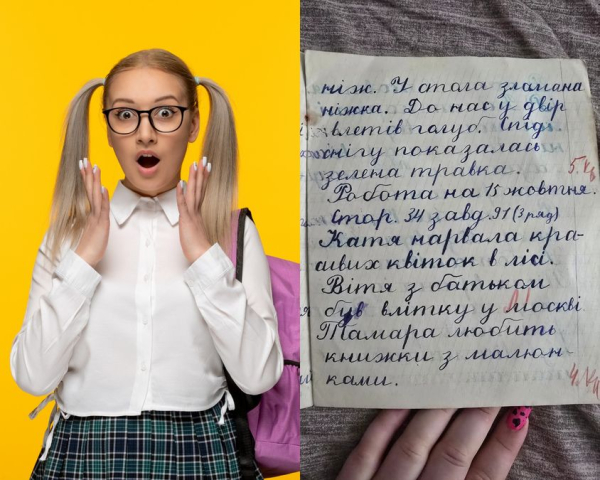 ніж. У стола зламана
ніжка. До нас у двір
влетів голуб. Із під
снігу показалась
зелена травка.
Робота на 15 жовтня.
Стор. 34 завд. 91 (3 ряд)
Катя нарвала кра-
сивих квіток в лісі.
Вітя з батьком
був влітку у москві
Тамара любить
книжки з малюн-
ками.